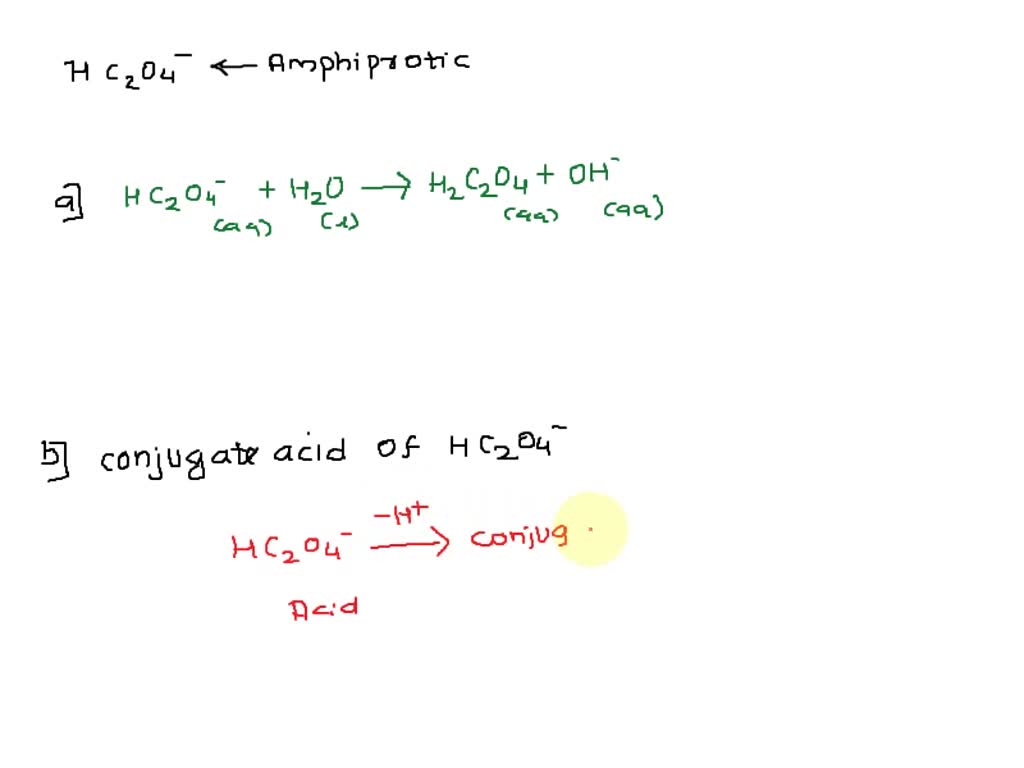 HC₂O₄⁻ ← Amphiprotic
a] HC₂O₄⁻(aq) + H₂O(l) → H₂C₂O₄(aq) + OH⁻(aq)
b] conjugate acid of HC₂O₄⁻
HC₂O₄⁻ −H⁺→ conjug
Acid